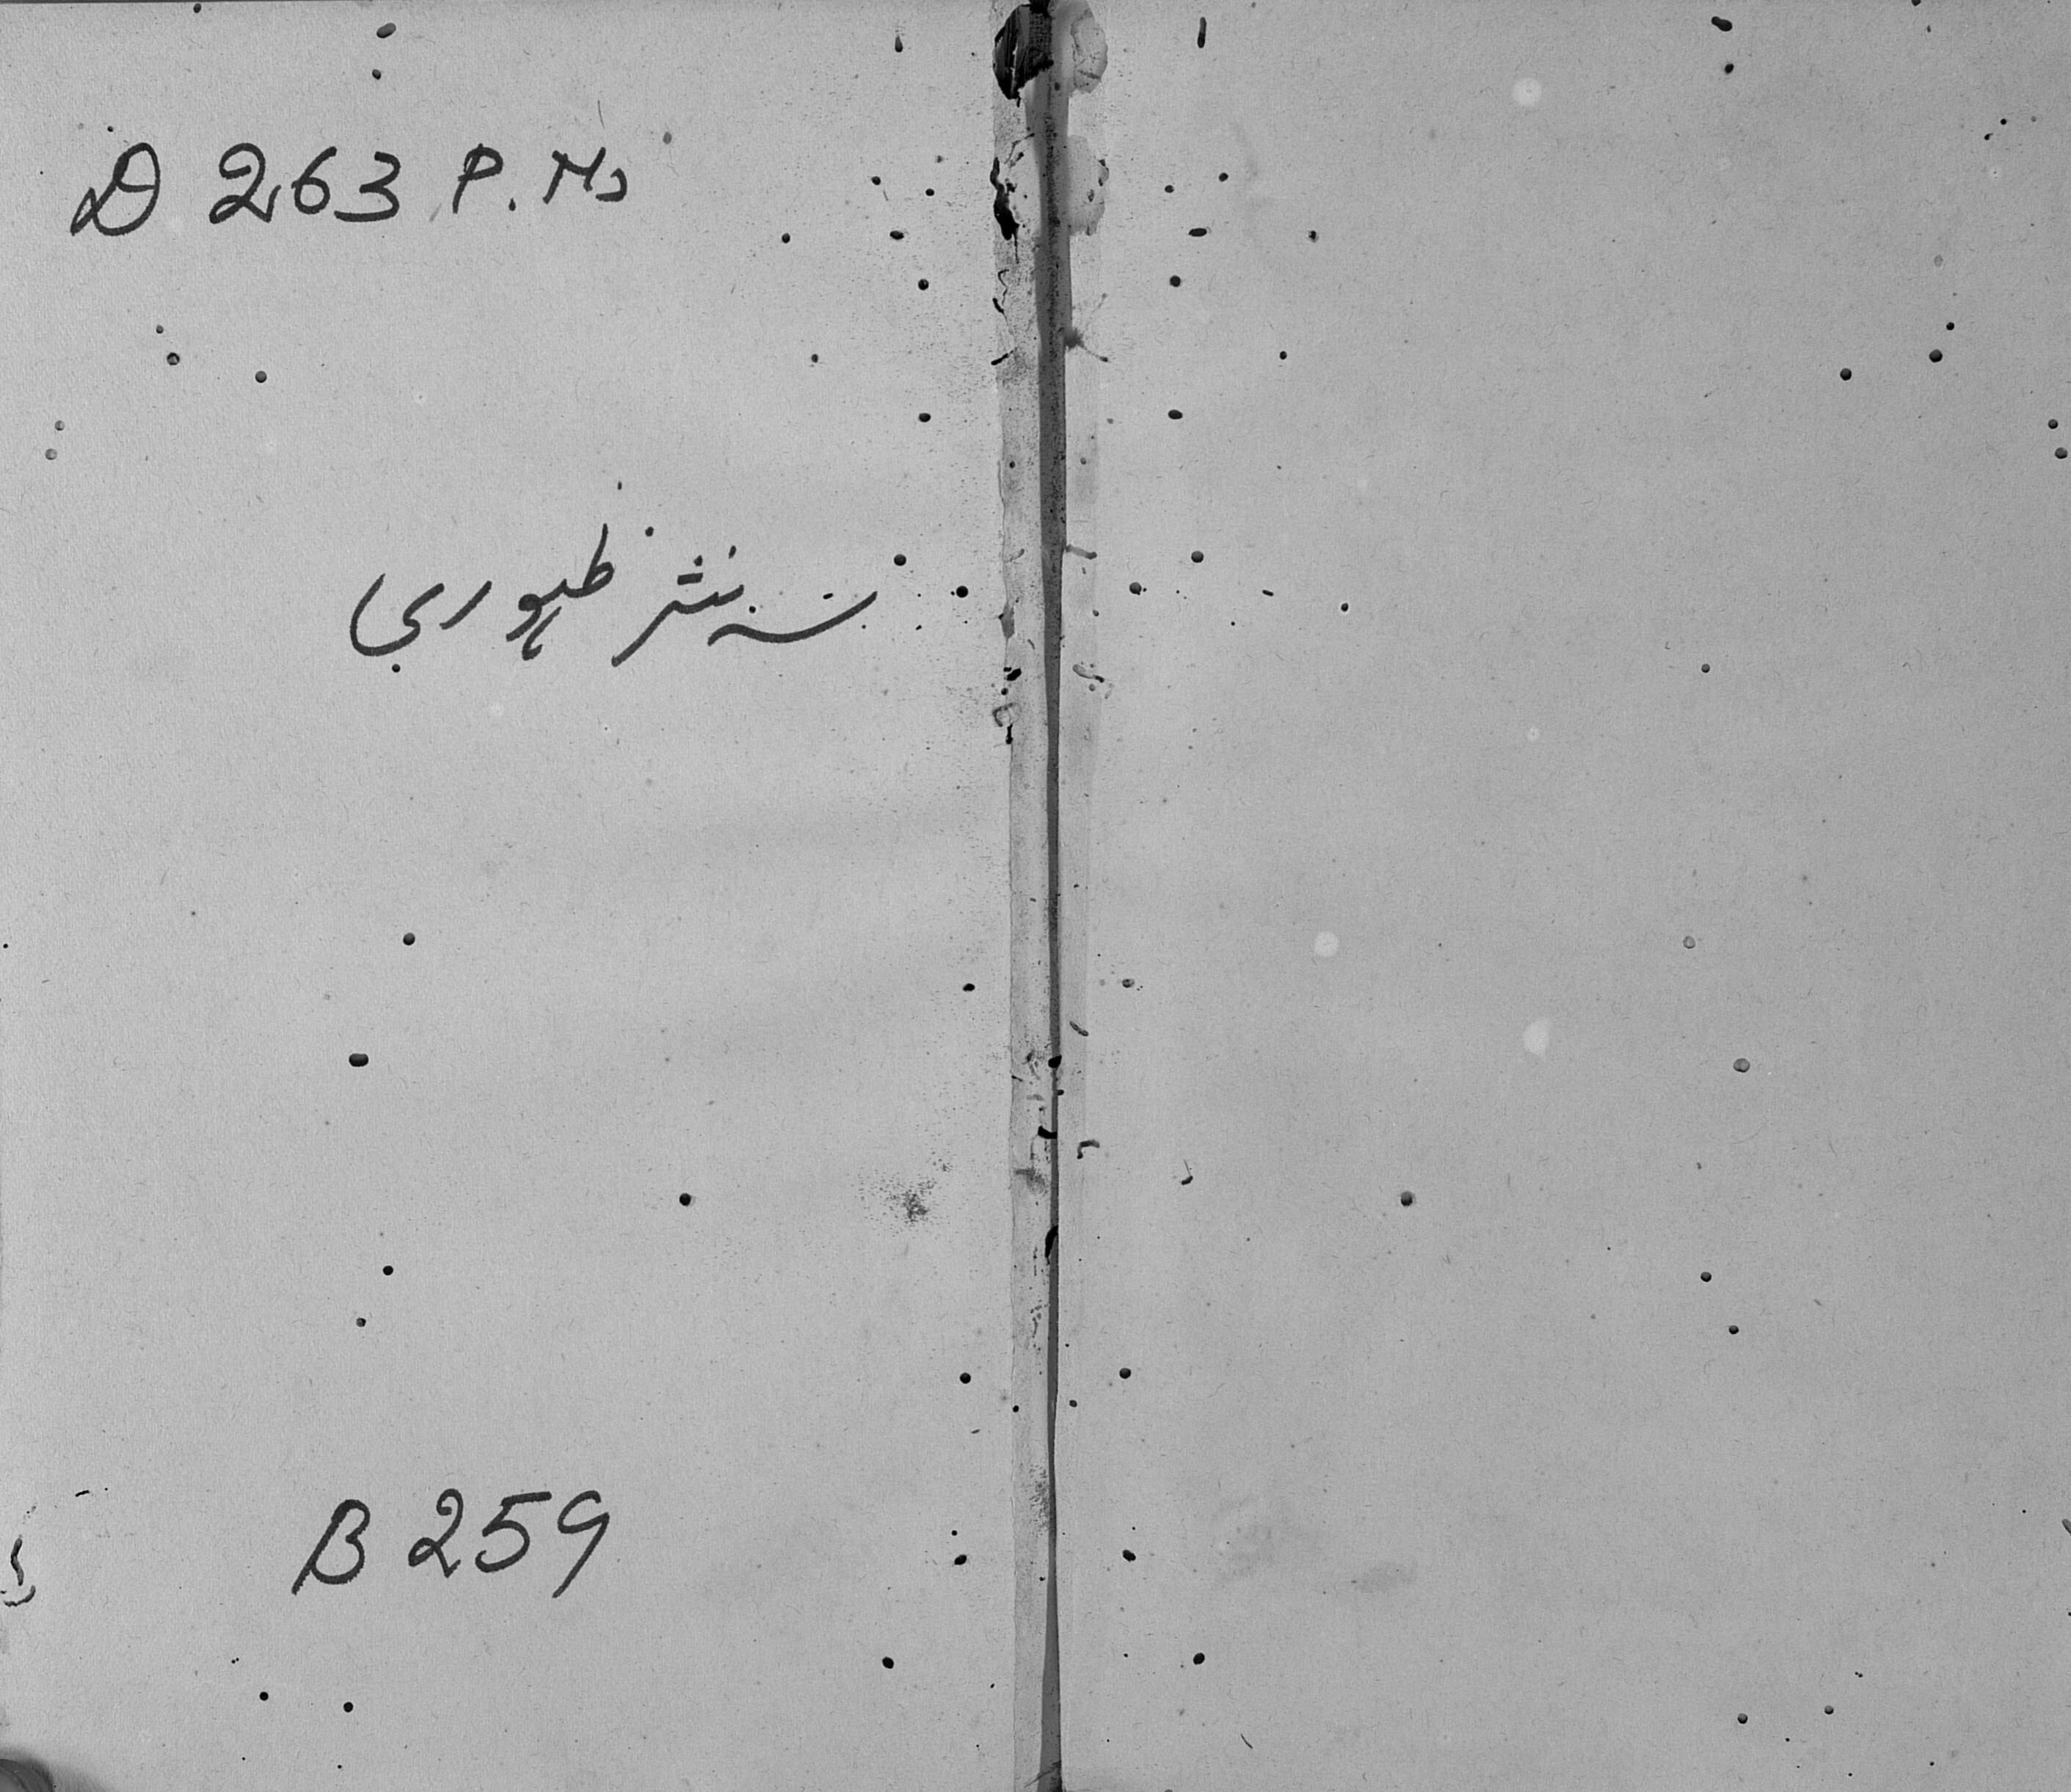 D 263 P. Ms
سہ نثر ظہوري
B 259